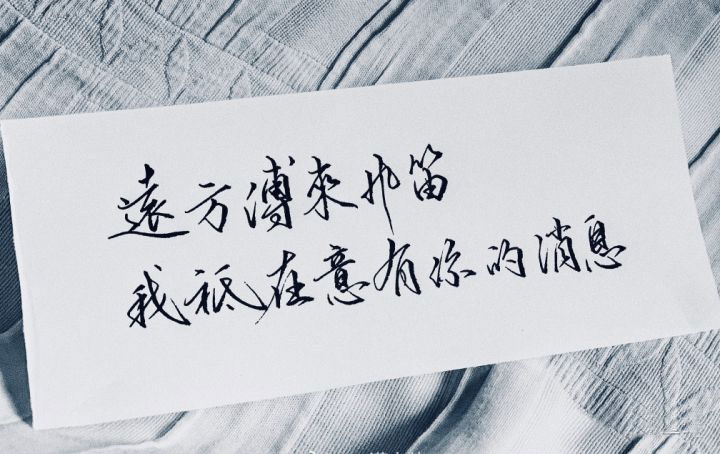 遠方傳來風笛
我祗在意有你的消息